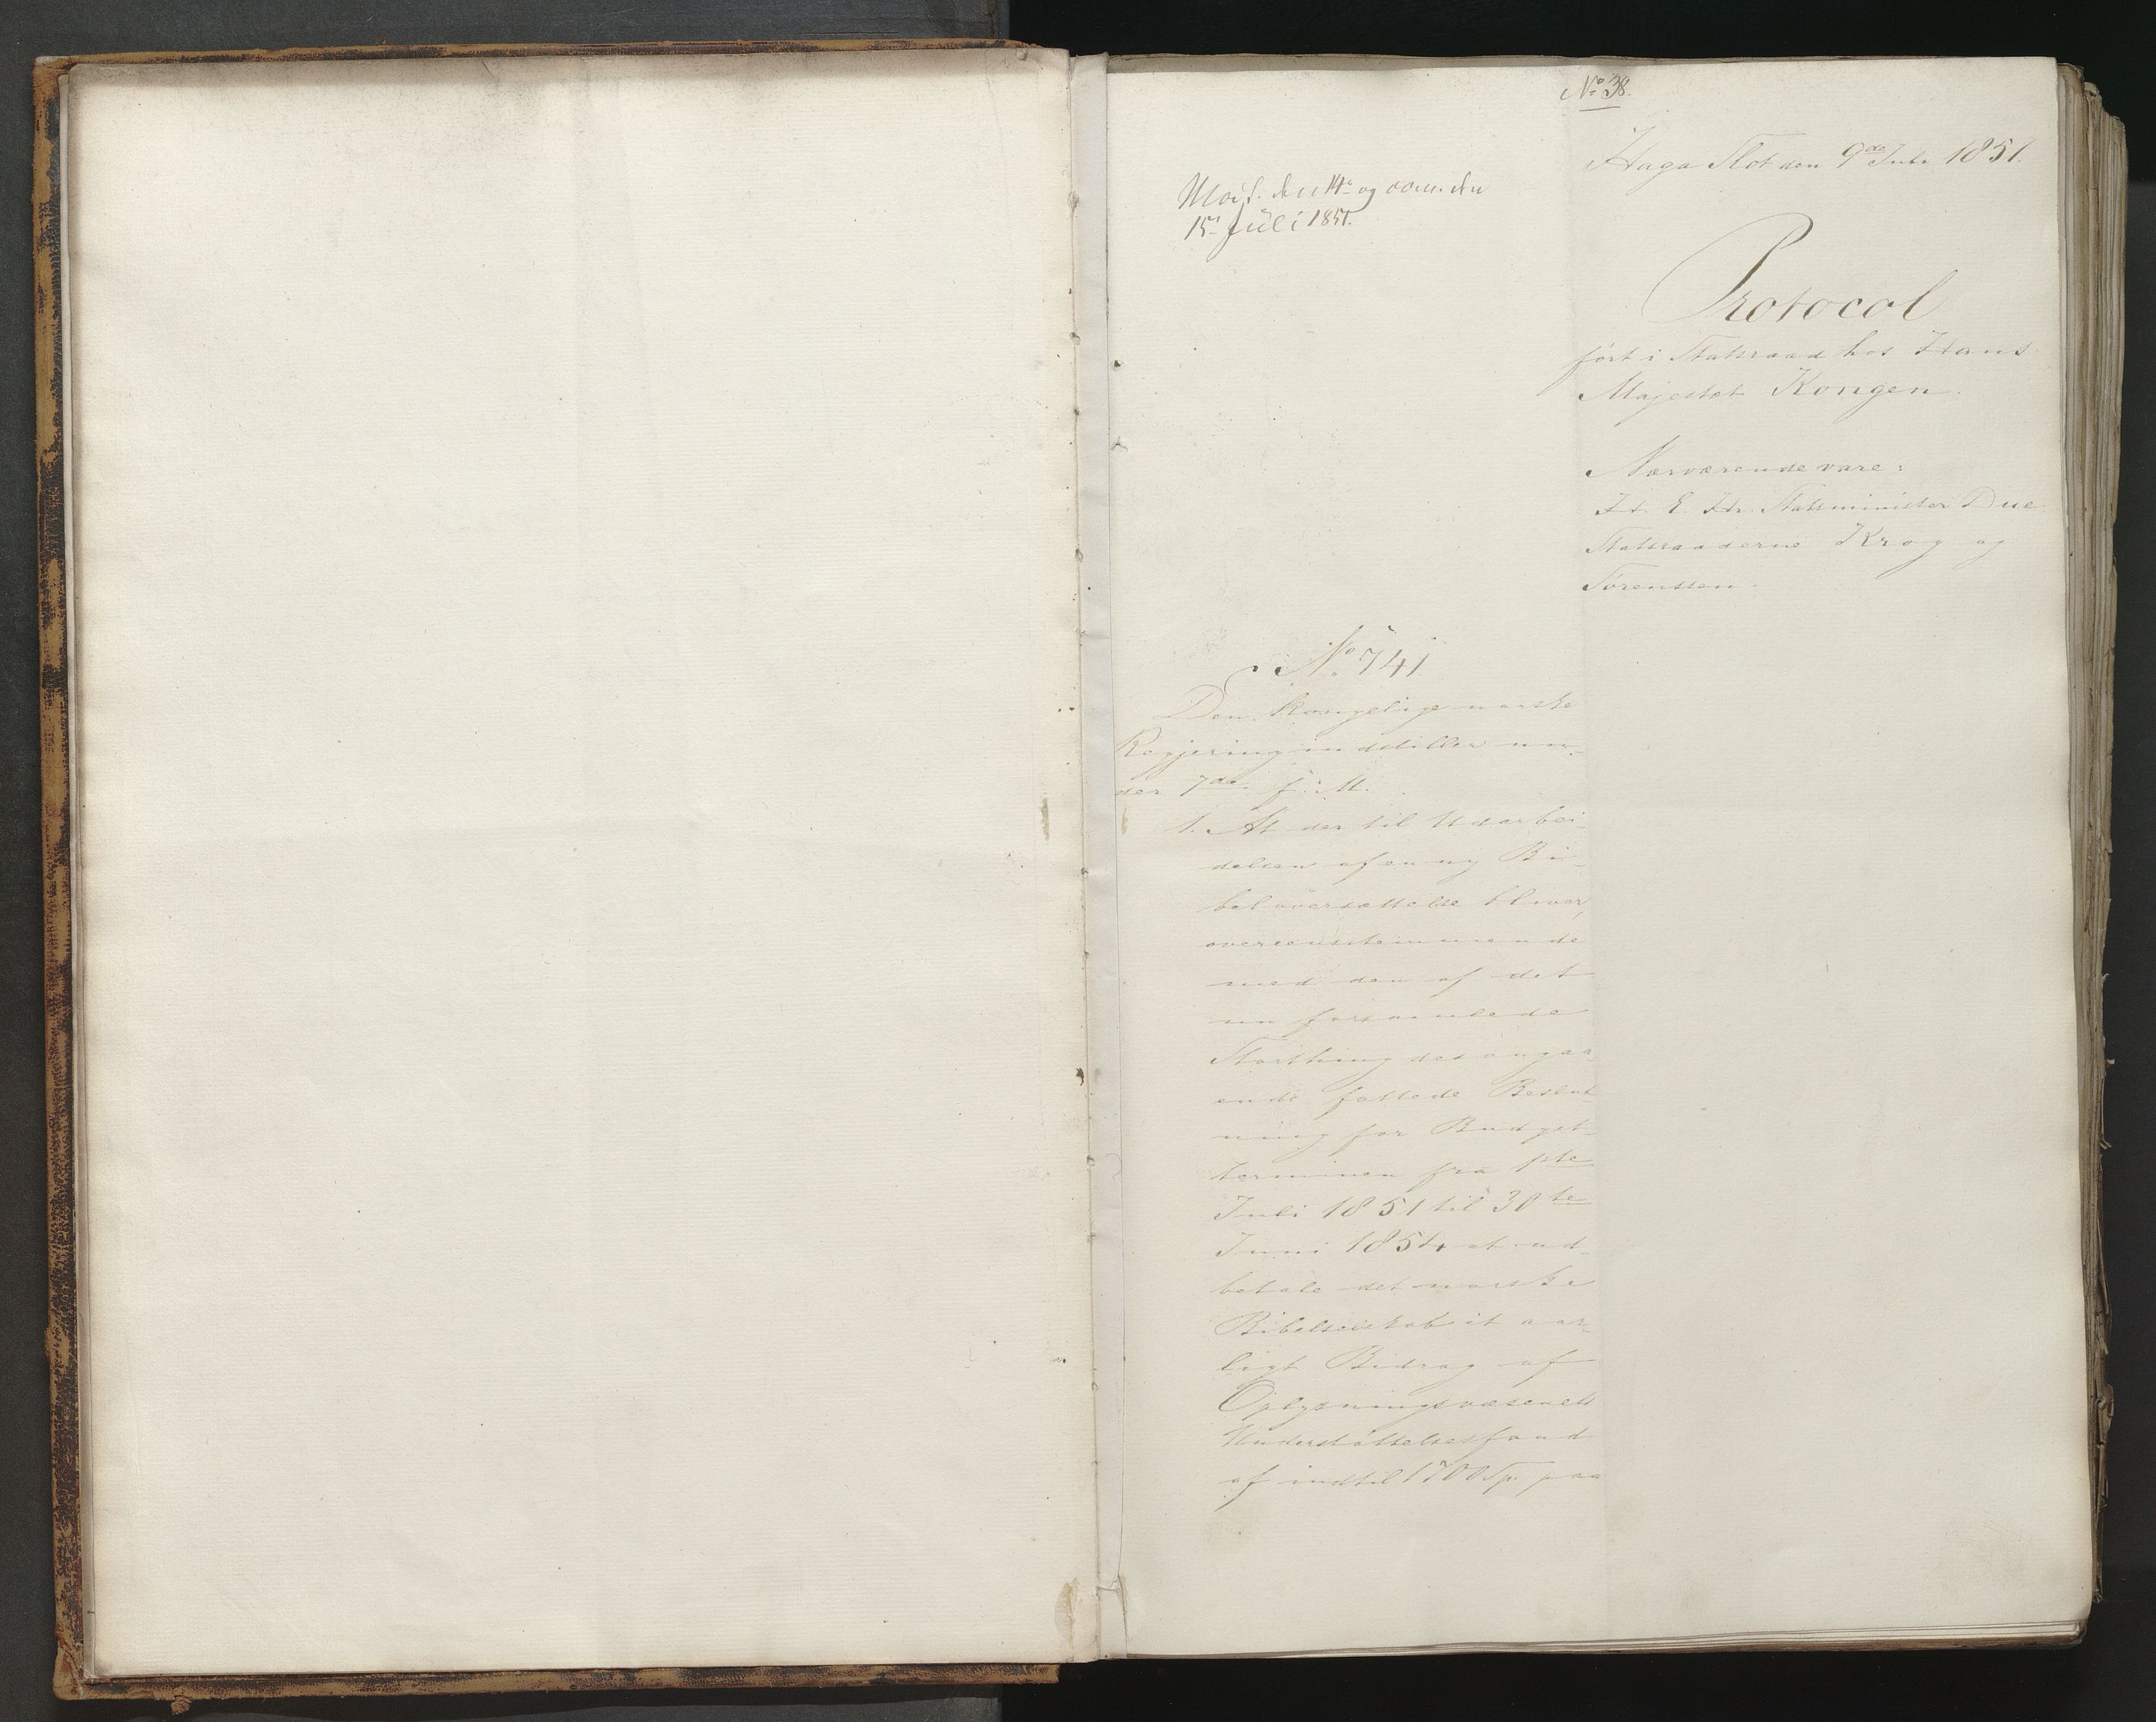 No 38.
Haga Slot den 9de Juli 1851.
Modt. den 14e og den
15e Juli 1851.
Protocol
ført i Statsraad hos Hans
Majestæt Kongen.
Nærværende vare:
H. E. Hr. Statsminister Due
Statsraaderne Krog og
Sørenssen.
No 741
Den kongelige norske
Regjering indstiller un-
der 7de f. M.
1. At der til Udarbei-
delsen af en ny Bi-
beloversættelse bliver,
overeensstemmende
med den af det
nu forsamlede
Storthing desangaa-
ende fattede Beslut-
ning for Budget-
terminen fra 1ste
Juli 1851 til 30te
Juni 1854 at ud-
betale det norske
Bibelselskab et aar-
ligt Bidrag af
Oplysningsvæsenets
Understøttelsesfond
af indtil 1700 Sp. paa